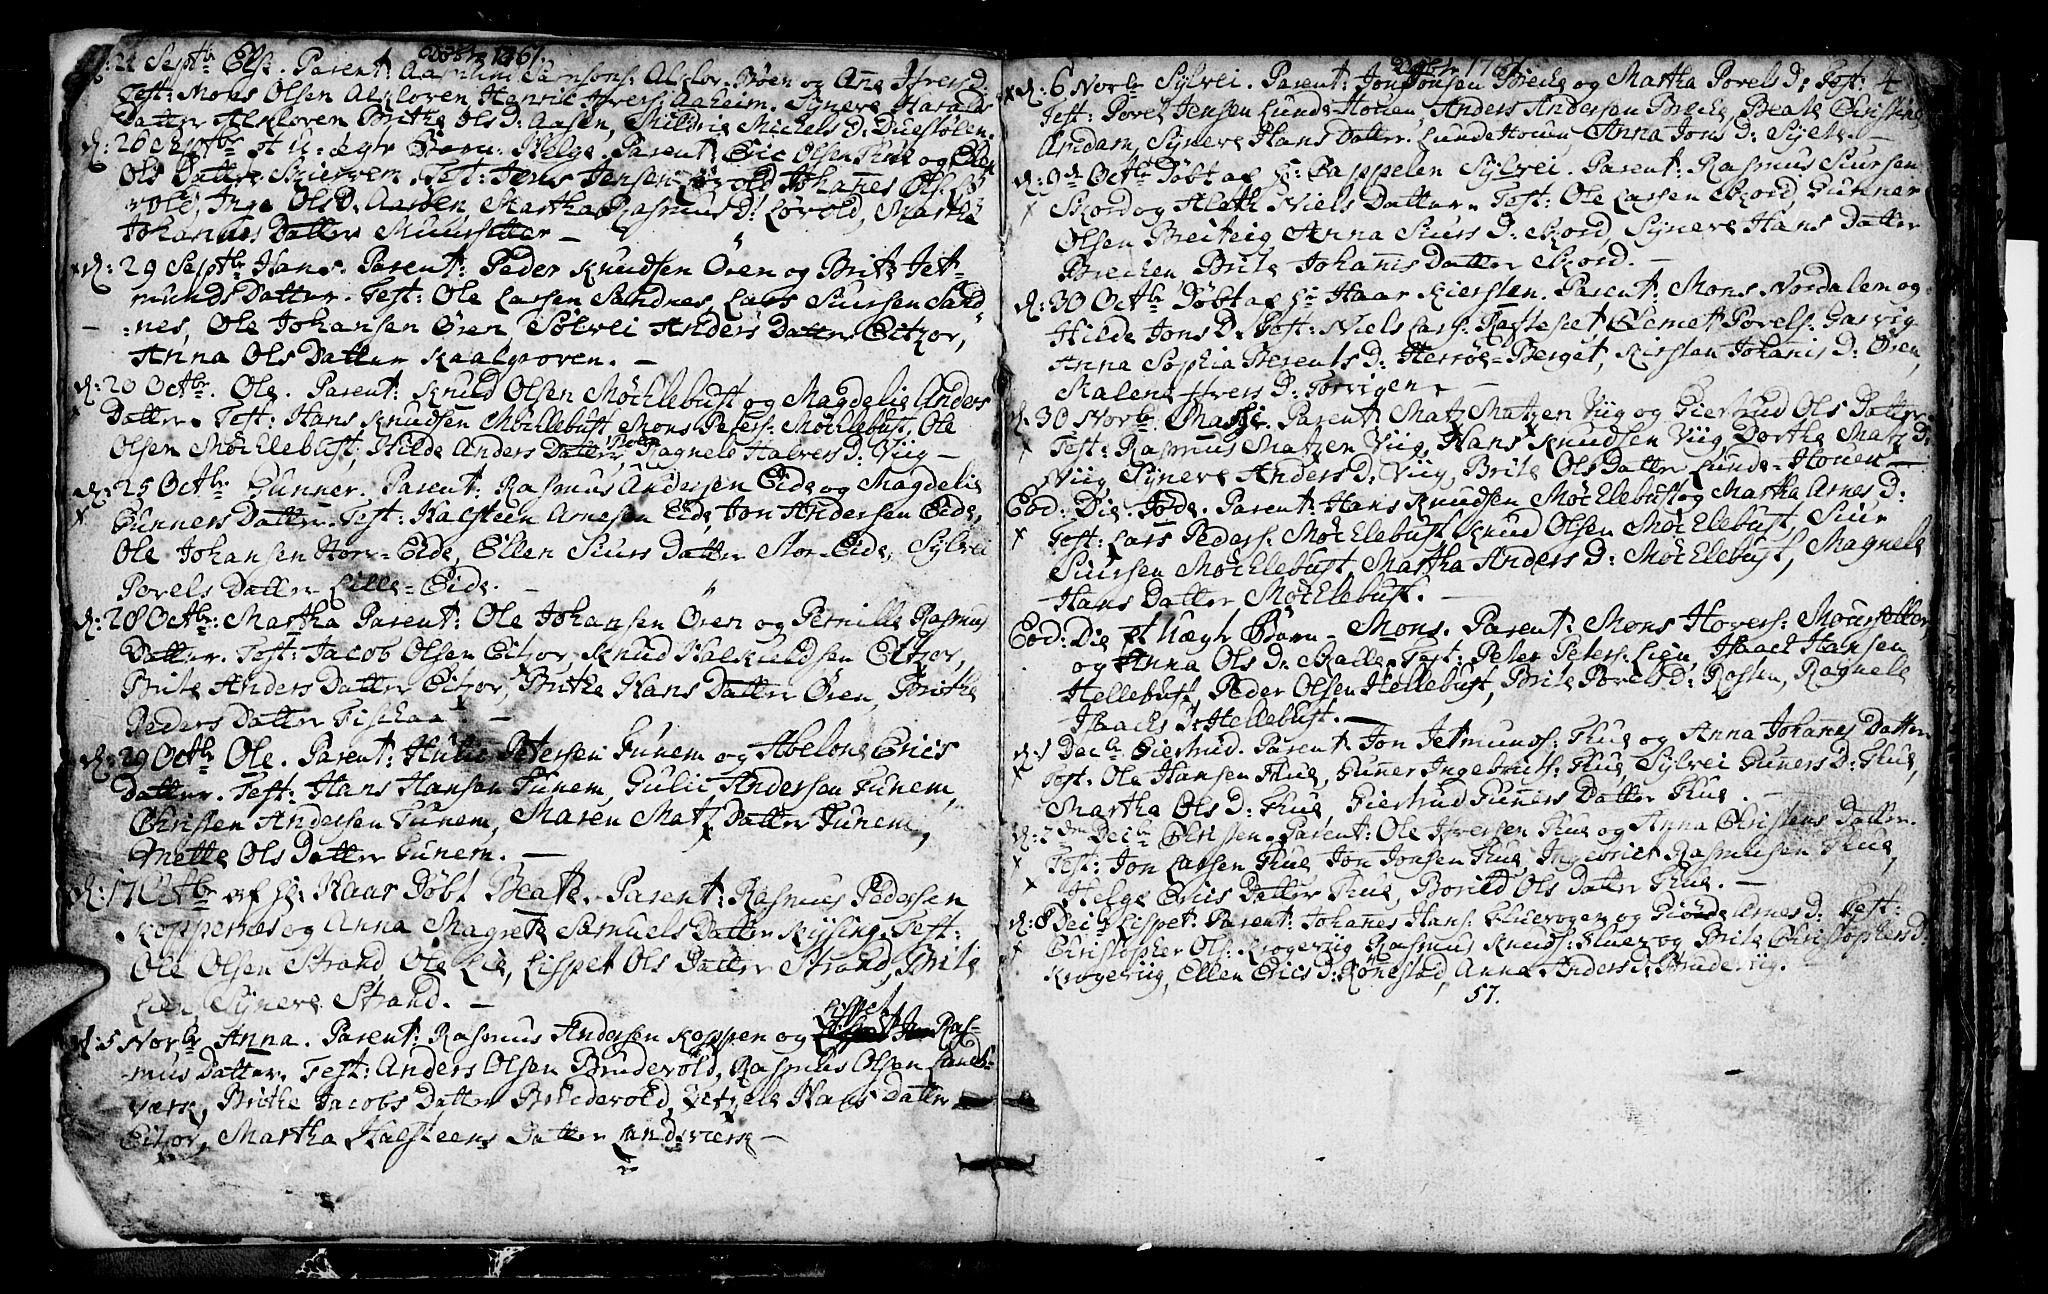 Døbte 1761.
d: 21 Septbr Else. Parent: Samsons: Alclov. Bøen og Ane Ifvers D:
Test: Mons Olsen Alcloven, Henric Ifvers: Aaheim, Synneve Haralds
Datter Alcloven, Brithe Ols D: Aasen, Mildrie Michels D: Duestølen.
d: 26 Septbr et U: Ægte Barn: Helge. Parent: Eric Olsen Thue og Elen
Ols Datter Skierven. Test: Jens Jensen Johannes Ols:
vold, Inge Ols D. Aarsen, Martha Rasmus D: Løvold, Marthe
Johannes Datter Muursetter –
d: 29 Septbr Hans. Parent: Peder Knudsen Ören og Brite Jet-
munds Datter. Test: Ole Larsen Sandnes, Lars Siursen Sand
nes, Ole Johansen Ören, Sølvei Anders Datter Eitzor,
Anna Ols Datter Kaalgroven. –
d: 20 Octbr. Ole. Parent: Knud Olsen Möchlebust og Magdelie Anders
Datter. Test: Hans Knudsen Möchlebust, Mons Peters: Möchlebust, Ole
Olsen Möchlebust, Hilde Anders Datter, Ragnele Halvers D: Viig –
d: 25 Octbr Gunner. Parent: Rasmus Andersen Eide og Magdelie
Gunners Datter. Test: Halsteen Arnesen Eide, Jon Andersen Eide,
Ole Johansen Stor-Eide, Ellen Siurs Datter Stor-Eide, Sylvei
Povels Datter Lille-Eide.
d: 28 Octbr: Martha Parent: Ole Johansen Ören og Pernille Rasmus
Datter. Test: Jacob Olsen Eitzor, Knud Halkieldsen Eitzor,
Brite Anders Datter Eitzor, Brithe Hans Datter Ören, Brithe
Peders Datter Fischaa. –
d: 29 Octbr Ole. Parent: Petersen Funem og Abelone Erics
Datter. Test: Hans Hansen Funem, Gulic Andersen Funem,
Christen Andersen Funem, Maren Matz Datter Funem,
Mette Ols Datter Funem. –
d: 17 Octbr af Hr: Haar Døbt Beate. Parent: Rasmus Pedersen
Koppenes og Anna Magrete Samuels Datter Kiising. Test:
Ole Olsen Strand, Ole Lie, Lispet Ols Datter Strand, Brite
Lien, Synneve Strand. –
Lisbet
d: 5 Novbr Anna. Parent: Rasmus Andersen Koppen og Ras-
mus Datter. Test: Anders Olsen Brudevold, Rasmus Olsen Lands-
værk, Brithe Jacobs Datter Brudevold, Hans Datter
Eitzor, Martha Halsteens Datter Landsværk –
Døbte 1761. 4
d: 6 Novbr Sylvei. Parent: Jon Jonsen Breche og Martha Povels D:
Test: Povel Jensen Lunde-Houen, Anders Andersen Breche, Beate Christens
Ardam, Synneve Hans Datter Lunde Houen, Anna Jons D: Sylte. –
d: 9de Octbr Døbt af Hr: Cappelen Sylvei. Parent: Rasmus Siursen
Skord og Aleth Niels Datter. Test: Ole Larsen Skord, Gunner
Olsen Breiteig, Anna Siurs D: Skord, Synneve Hans Datter
Brechen, Brite Johanis Datter Skord. –
d: 30 Octbr Døbt af Hr Haar Kiersten. Parent: Mons Nordalen og
Hilde Jons D. Test: Niels Lars: Rafteset, Clemet Povels: Garvig
Anna Sophia Berents D: Herröe-Berget, Kirsten Johanis D: Ören,
Malene Ifvers D: Torvigen –
d: 30 Novbr. Parent: Matz Matzen Viig og Giertrud Ols Datter
Test: Rasmus Matzen Viig, Hans Knudsen Viig, Dorthe Matz D:
Viig, Synneve Anders D: Viig, Brite Ols Datter Lunde-Houen –
Eod: Die. Jöde. Parent: Hans Knudsen Möchlebust og Martha Arnes D:
Test: Lars Peders: Möchlebust, Knud Olsen Möchlebust, Siur
Siursen Möchlebust, Martha Anders D: Möchlebust, Magnele
Hans Datter Möchlebust. –
Eod: Die et Uægte Barn – Mons. Parent: Mons Hovers: Moursetter,
og Anna Ols D: Balle. Test: Peter Peters: Lien, Isaach Hansen
Hellebust, Peder Olsen Hellebust, Brite Povels D: Rosten, Ragnele
Isaachs D: Hellebust. –
d: 1 Decbr Giertrud. Parent: Jon Jetmunds: Thue og Anna Johannes Datter
Test: Ole Hansen Thue, Gunner Ingebrits: Thue, Sylvei Gunners D: Thue,
Martha Ols D: Thue, Giertrud Gunners Datter Thue. –
d: 2den Decbr Christen. Parent: Ole Ifversen Thue og Anna Christens Datter.
Test: Jon Larsen Thue, Jon Jonsen Thue, Ingebrict Rasmusen Thue,
Helge Erics Datter Thue, Borild Ols Datter Thue. –
d: 8 Decbr Lispet. Parent: Johanes Hans: Fluevogen og Giöde Arnes D: Test:
Christopher Ols: Krogeviig, Rasmus Knuds: Fluevog, Brite Christophers D:
Krogeviig, Ellen Erics D: Rönestad, Anna Anders D: Strudeviig. –
57.